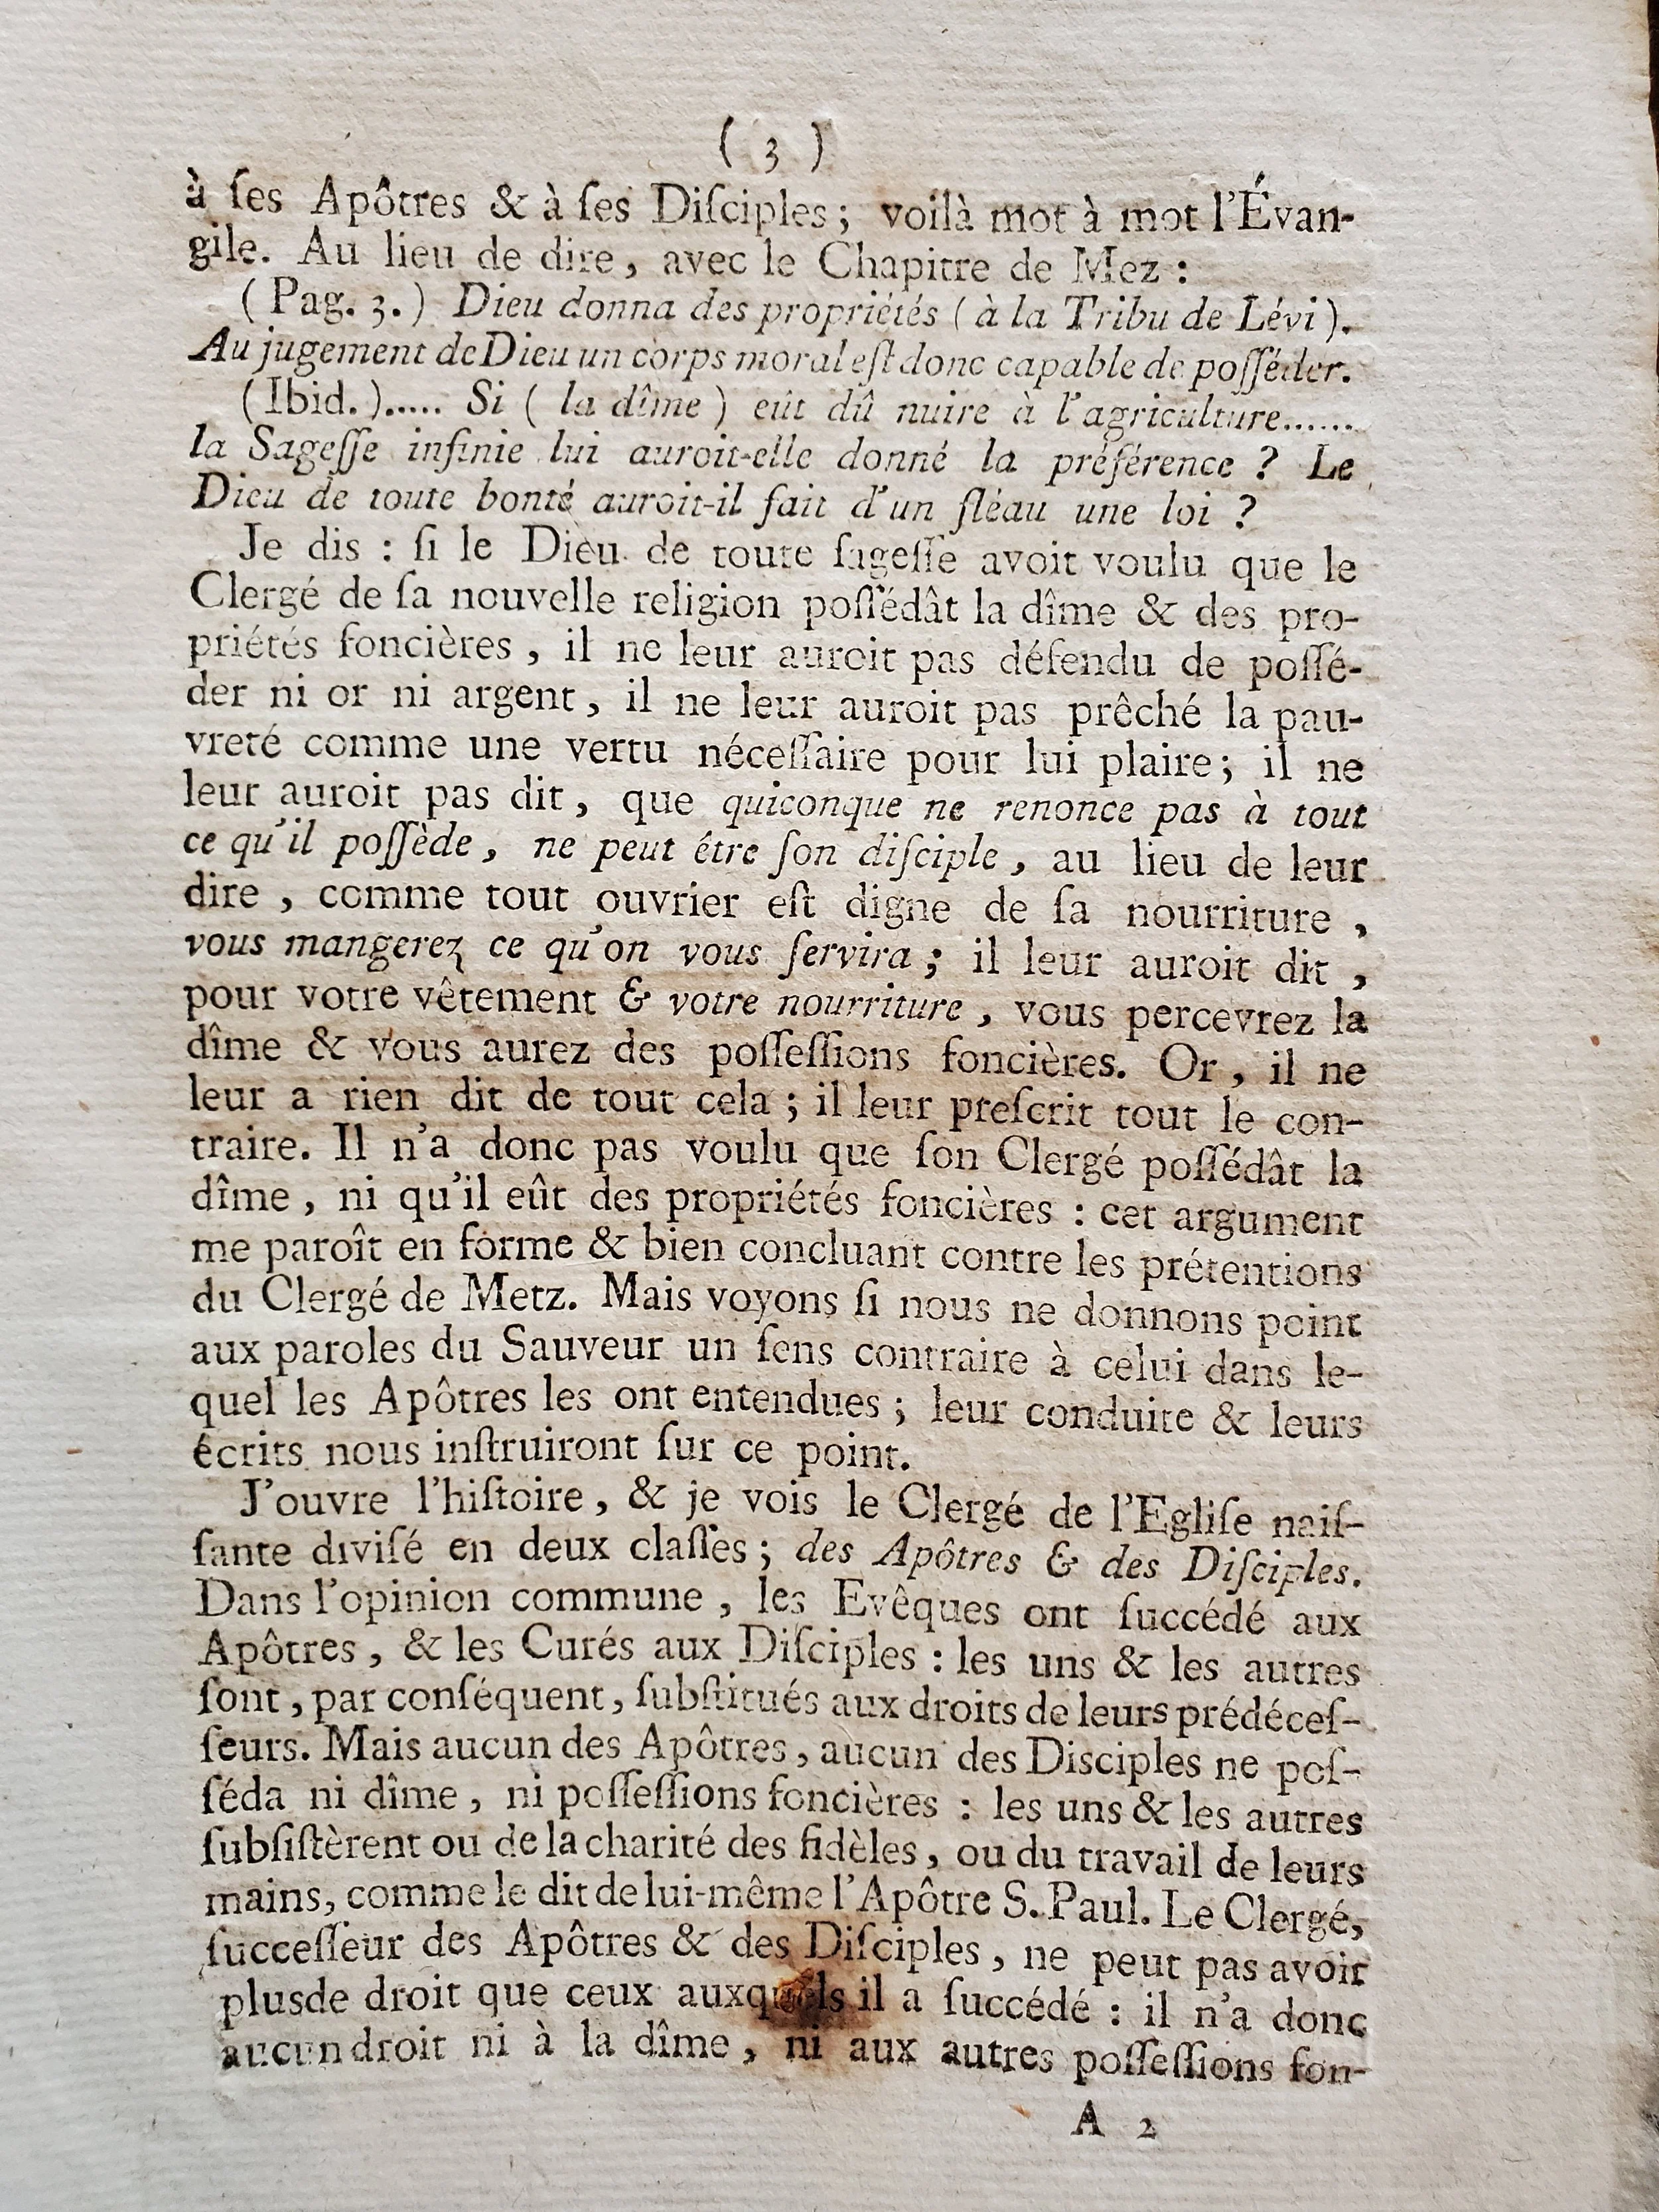 ( 3 )
à ſes Apôtres & à ſes Diſciples ; voilà mot à mot l'Évan-
gile. Au lieu de dire , avec le Chapitre de Mez :
( Pag. 3. ) Dieu donna des propriétés ( à la Tribu de Lévi ).
Au jugement de Dieu un corps moral eſt donc capable de poſſéder.
( Ibid. )..... Si ( la dîme ) eût dû nuire à l'agriculture......
la Sageſſe infinie lui auroit-elle donné la préférence ? Le
Dieu de toute bonté auroit-il fait d'un fléau une loi ?
Je dis : ſi le Dieu de toute ſageſſe avoit voulu que le
Clergé de ſa nouvelle religion poſſédât la dîme & des pro-
priétés foncières , il ne leur auroit pas défendu de poſſé-
der ni or ni argent , il ne leur auroit pas prêché la pau-
vreté comme une vertu néceſſaire pour lui plaire ; il ne
leur auroit pas dit , que quiconque ne renonce pas à tout
ce qu'il poſſède , ne peut être ſon diſciple , au lieu de leur
dire , comme tout ouvrier eſt digne de ſa nourriture ,
vous mangerez ce qu'on vous ſervira ; il leur auroit dit ,
pour votre vêtement & votre nourriture , vous percevrez la
dîme & vous aurez des poſſeſſions foncières. Or , il ne
leur a rien dit de tout cela ; il leur preſcrit tout le con-
traire. Il n'a donc pas voulu que ſon Clergé poſſédât la
dîme , ni qu'il eût des propriétés foncières : cet argument
me paroît en forme & bien concluant contre les prétentions
du Clergé de Metz. Mais voyons ſi nous ne donnons point
aux paroles du Sauveur un ſens contraire à celui dans le-
quel les Apôtres les ont entendues ; leur conduite & leurs
écrits nous inſtruiront ſur ce point.
J'ouvre l'hiſtoire , & je vois le Clergé de l'Egliſe naiſ-
ſante diviſé en deux claſſes ; des Apôtres & des Diſciples.
Dans l'opinion commune , les Evêques ont ſuccédé aux
Apôtres , & les Curés aux Diſciples : les uns & les autres
ſont , par conſéquent , ſubſtitués aux droits de leurs prédéceſ-
ſeurs. Mais aucun des Apôtres , aucun des Disciples ne poſ-
ſéda ni dîme , ni poſſeſſions foncières : les uns & les autres
ſubſiſtèrent ou de la charité des fidèles , ou du travail de leurs
mains, comme le dit de lui-même l'Apôtre S. Paul. Le Clergé,
ſucceſſeur des Apôtres & des Diſciples , ne peut pas avoir
plusde droit que ceux auxquels il a ſuccédé : il n'a donc
aucun droit ni à la dîme , ni aux autres poſſeſſions fon-
A 2